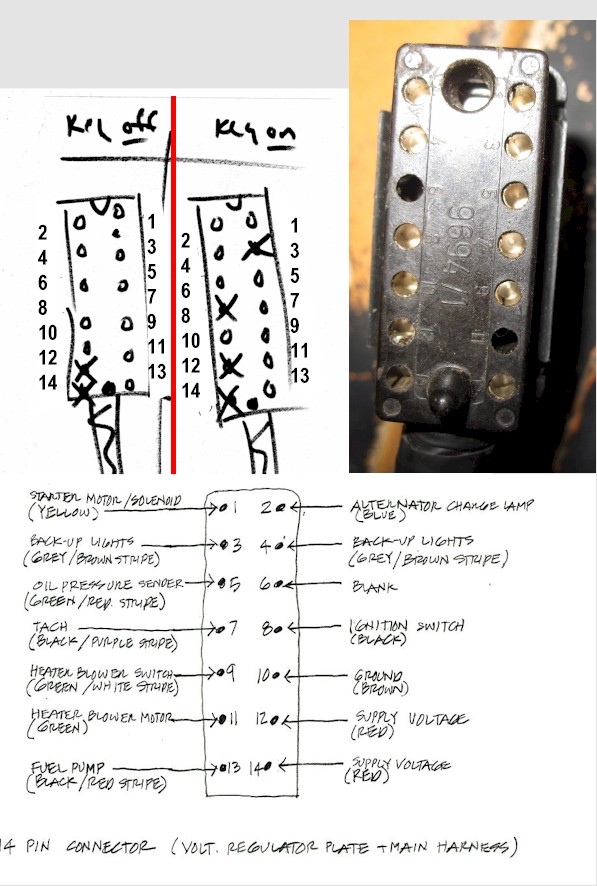 Key off
Key on
1
2
3
4
5
6
7
8
9
10
11
12
13
14
1
2
3
4
5
6
7
8
9
10
11
12
13
14
96941
STARTER MOTOR/SOLENOID
(YELLOW)
1 2
ALTERNATOR CHARGE LAMP
(BLUE)
BACK-UP LIGHTS
(GREY/BROWN STRIPE)
3 4
BACK-UP LIGHTS
(GREY/BROWN STRIPE)
OIL PRESSURE SENDER
(GREEN/RED STRIPE)
5 6
BLANK
TACH
(BLACK/PURPLE STRIPE)
7 8
IGNITION SWITCH
(BLACK)
HEATER BLOWER SWITCH
(GREEN/WHITE STRIPE)
9 10
GROUND
(BROWN)
HEATER BLOWER MOTOR
(GREEN)
11 12
SUPPLY VOLTAGE
(RED)
FUEL PUMP
(BLACK/RED STRIPE)
13 14
SUPPLY VOLTAGE
(RED)
14 PIN CONNECTOR (VOLT. REGULATOR PLATE + MAIN HARNESS)